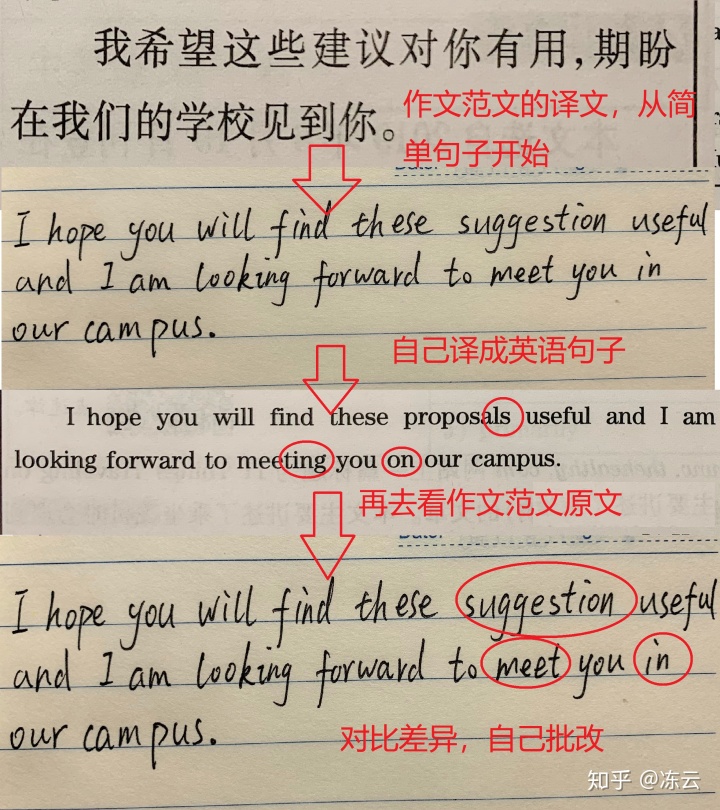 我希望这些建议对你有用,期盼
在我们的学校见到你。
作文范文的译文，从简
单句子开始
I hope you will find these suggestion useful
and I am looking forward to meet you in
our campus.
自己译成英语句子
I hope you will find these proposals useful and I am
looking forward to meeting you on our campus.
再去看作文范文原文
I hope you will find these suggestion useful
and I am looking forward to meet you in
our campus.
对比差异，自己批改
知乎 @冻云